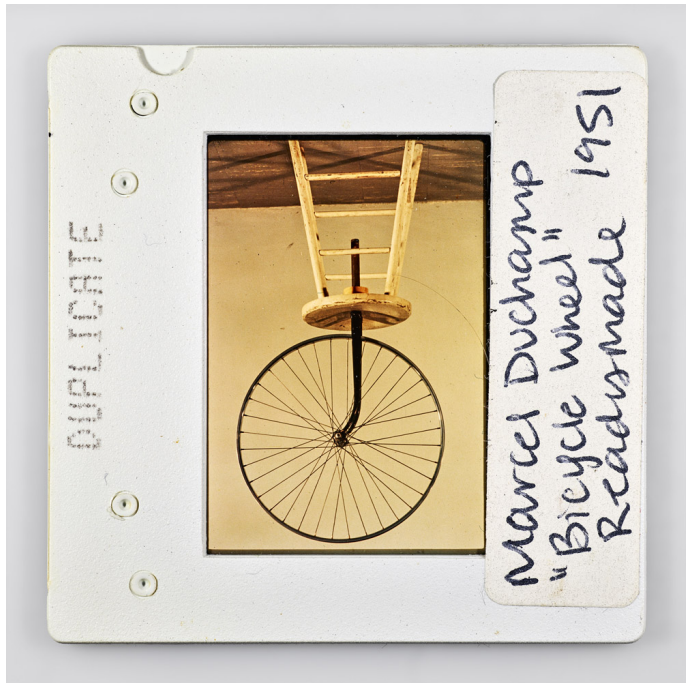 DUPLICATE
Marcel Duchamp
"Bicycle Wheel"
Readymade 1951